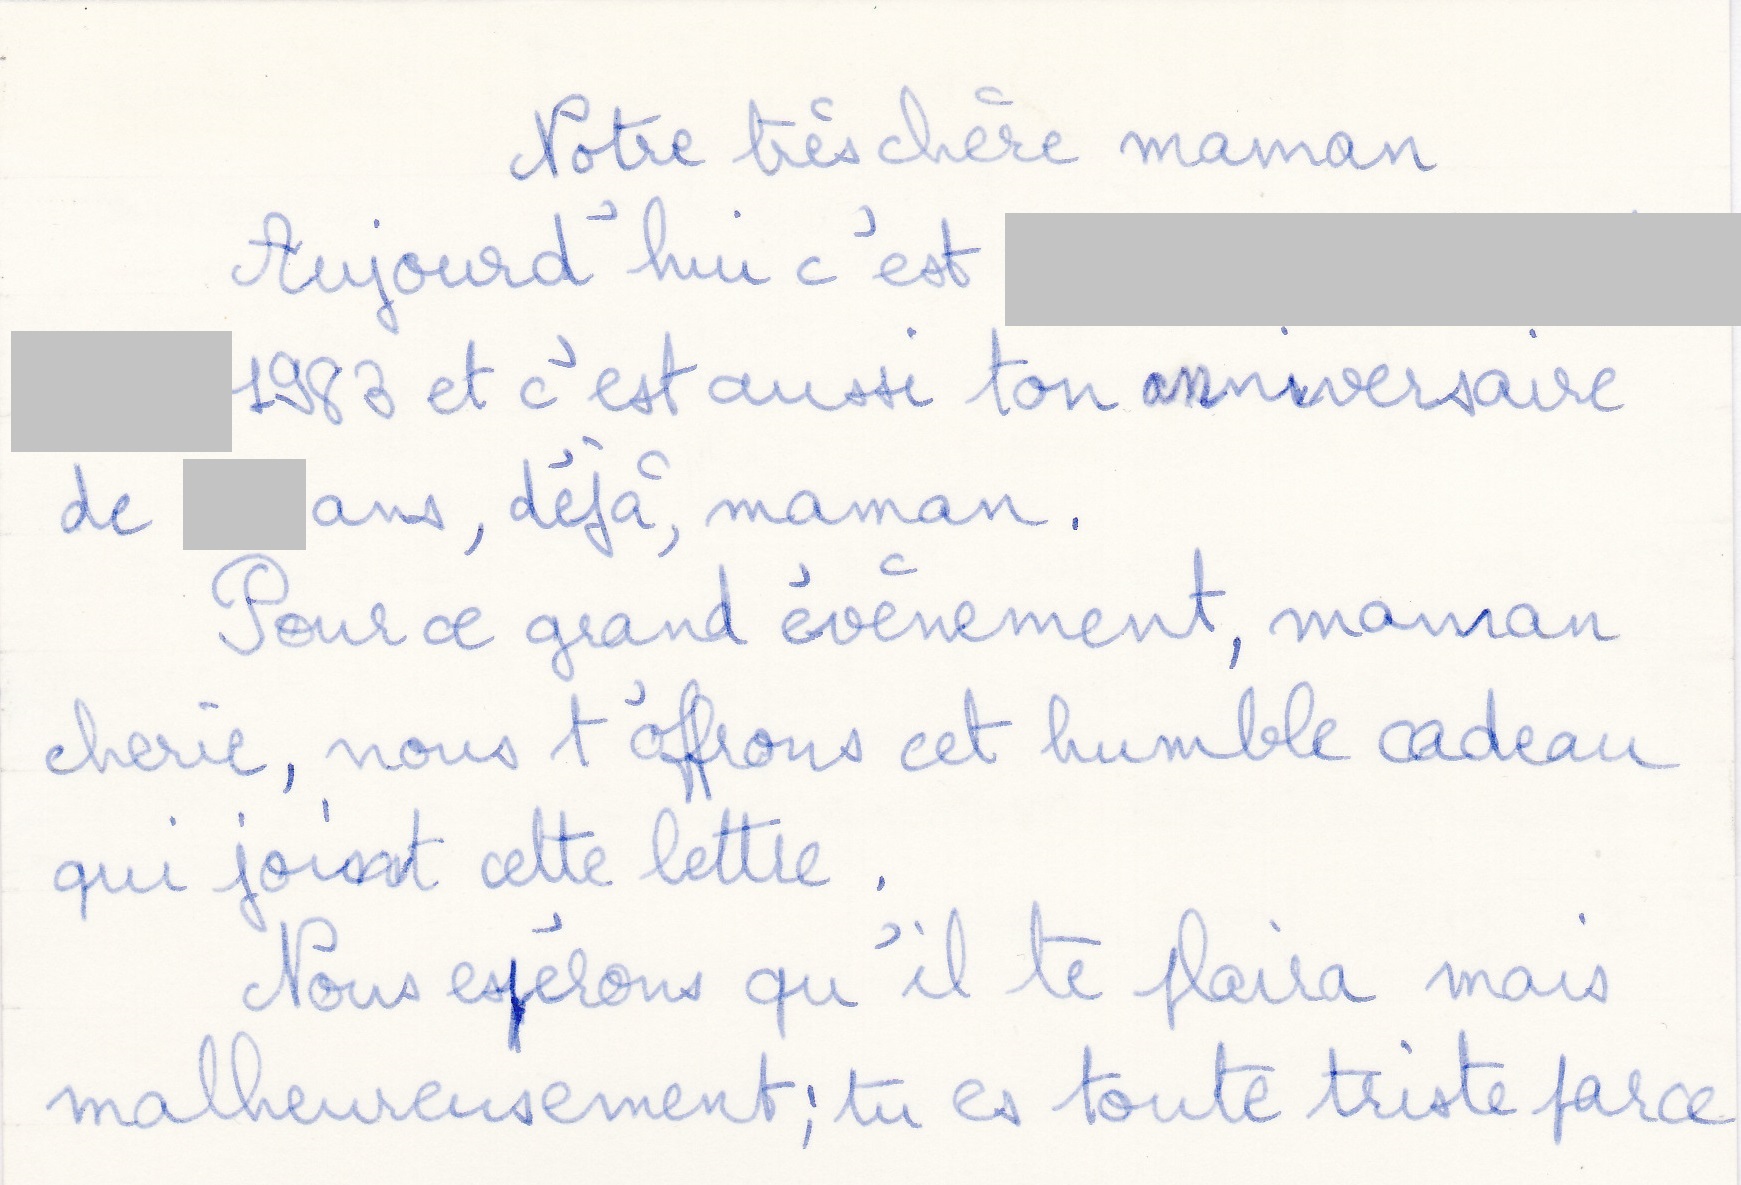 Notre très chère maman
Aujourd'hui c'est
1983 et c'est aussi ton anniversaire
de ans, déjà, maman.
Pour ce grand évènement, maman
cherie, nous t'offrons cet humble cadeau
qui joint cette lettre.
Nous espérons qu'il te plaira mais
malheureusement; tu es toute triste parce